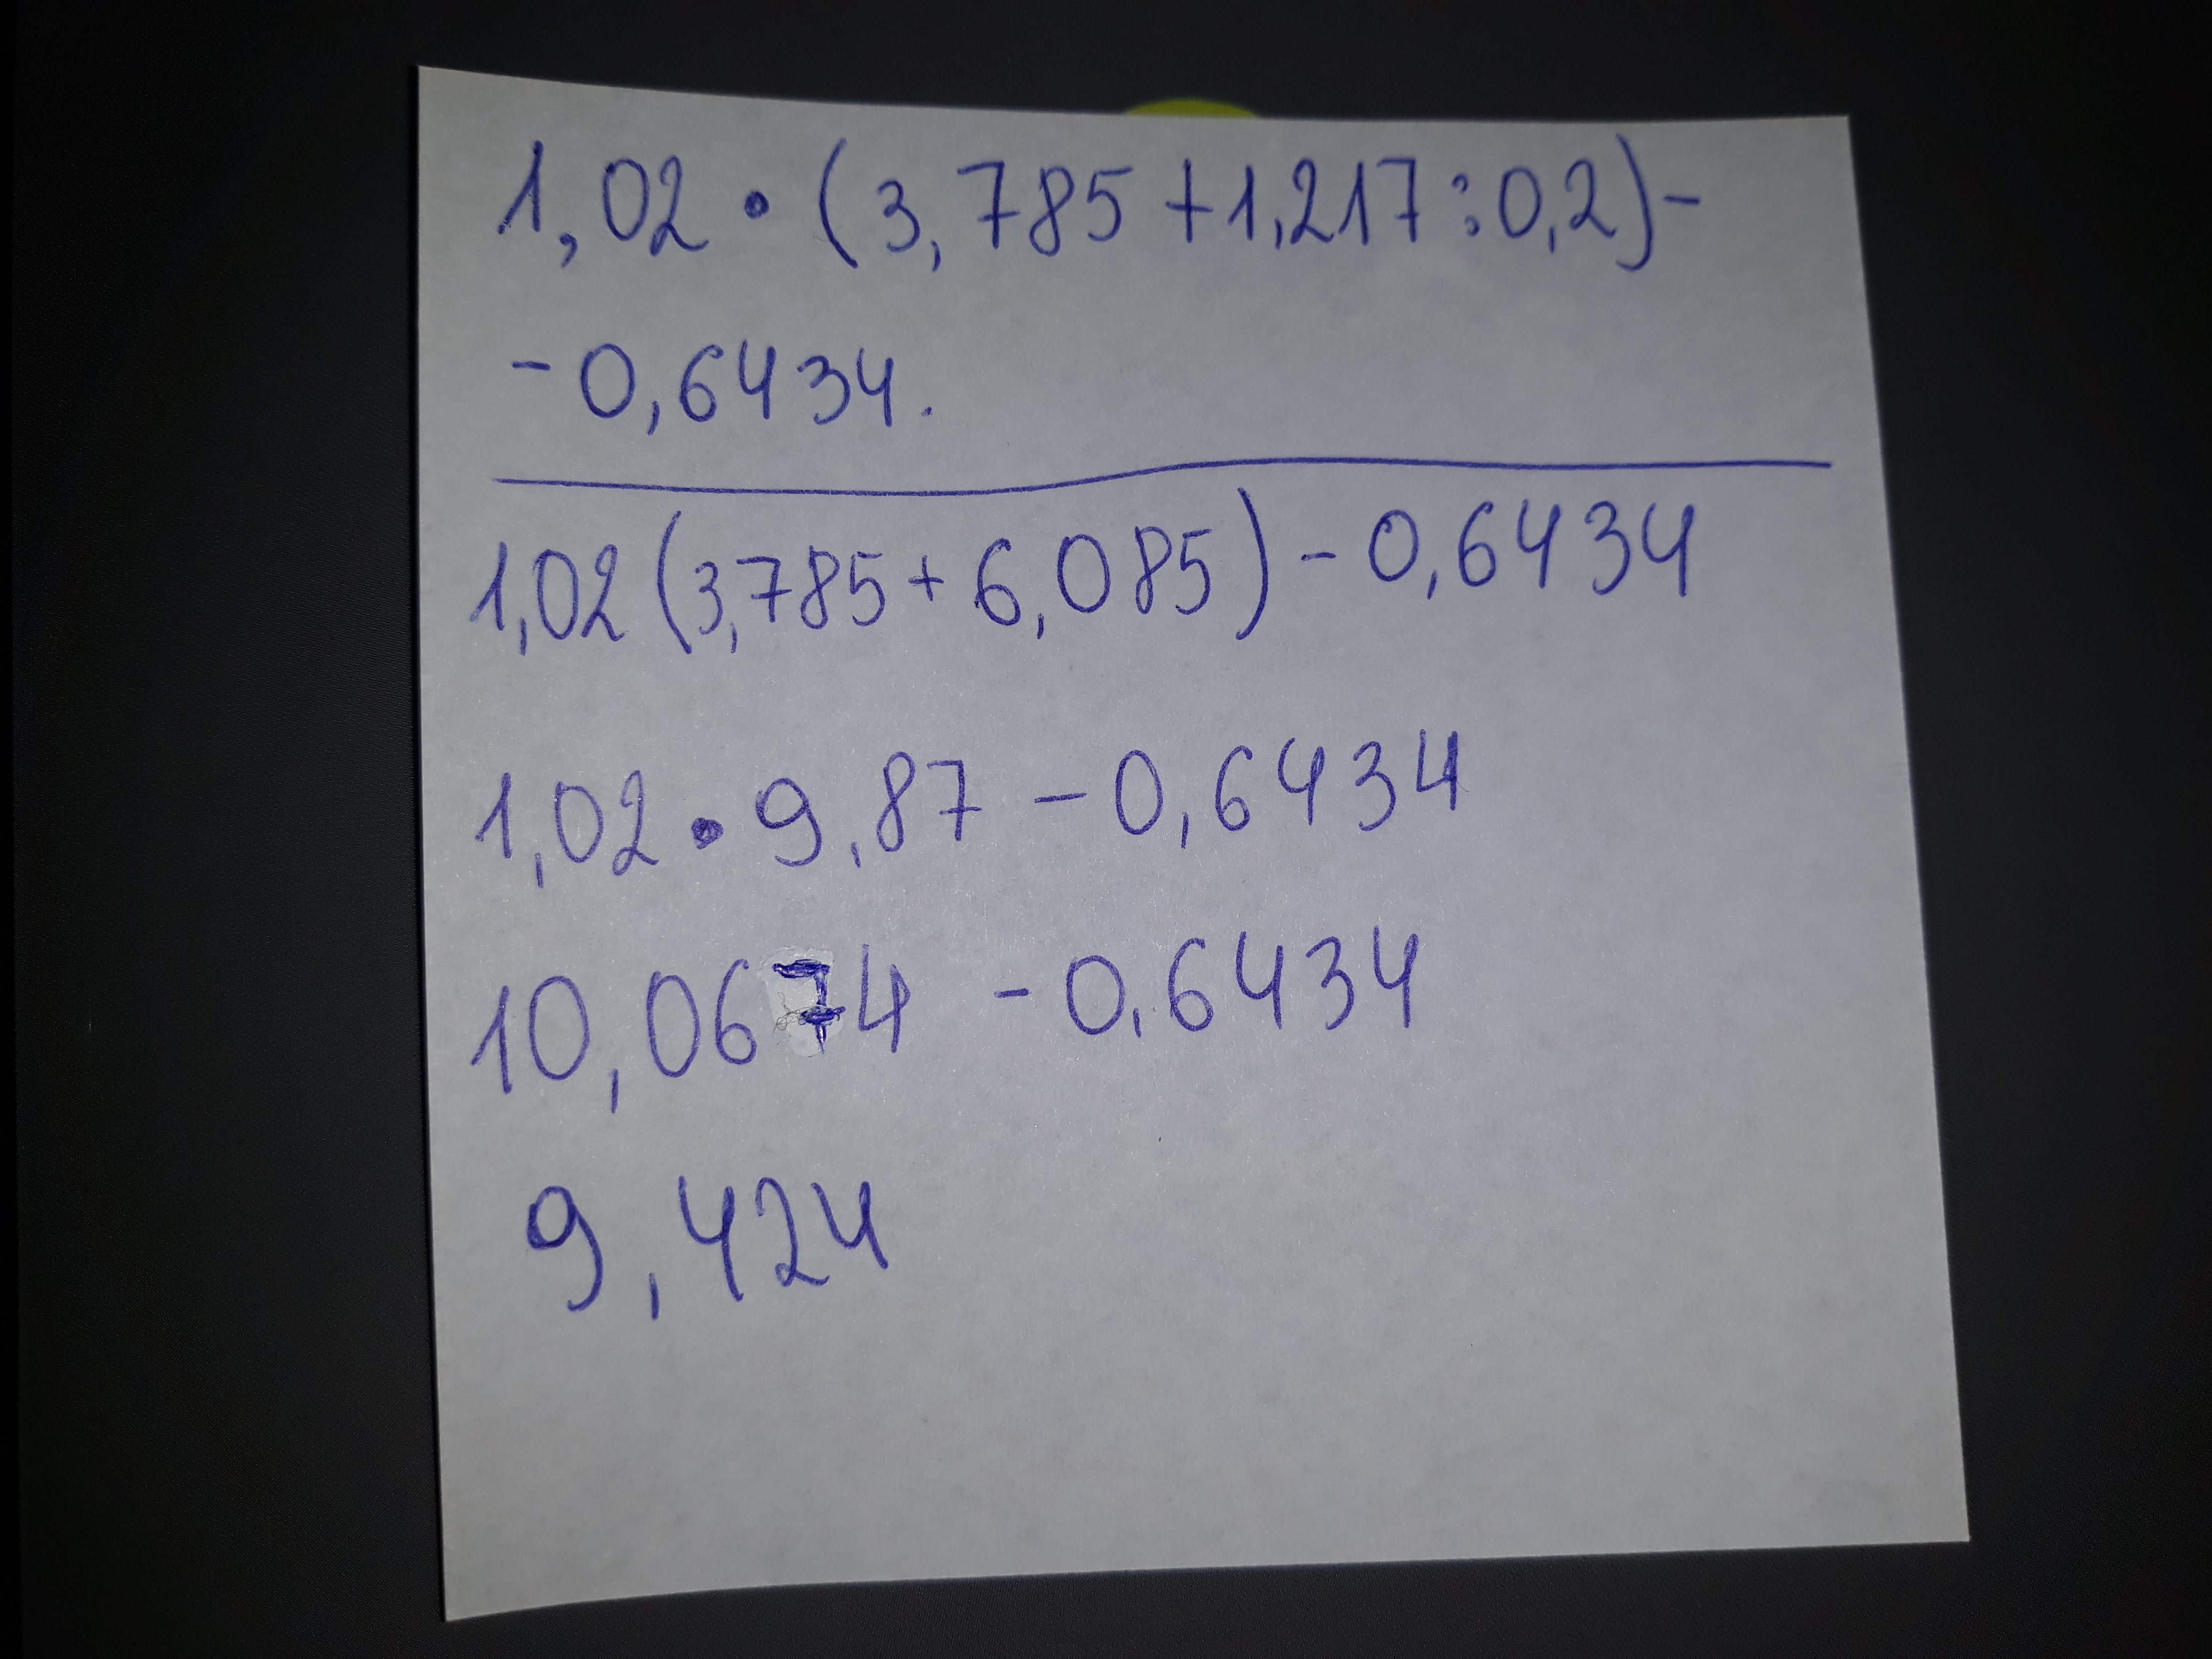 1,02 • (3,785 + 1,217 : 0,2) -
- 0,6434.
1,02 (3,785 + 6,085) - 0,6434
1,02 • 9,87 - 0,6434
10,0674 - 0,6434
9,424